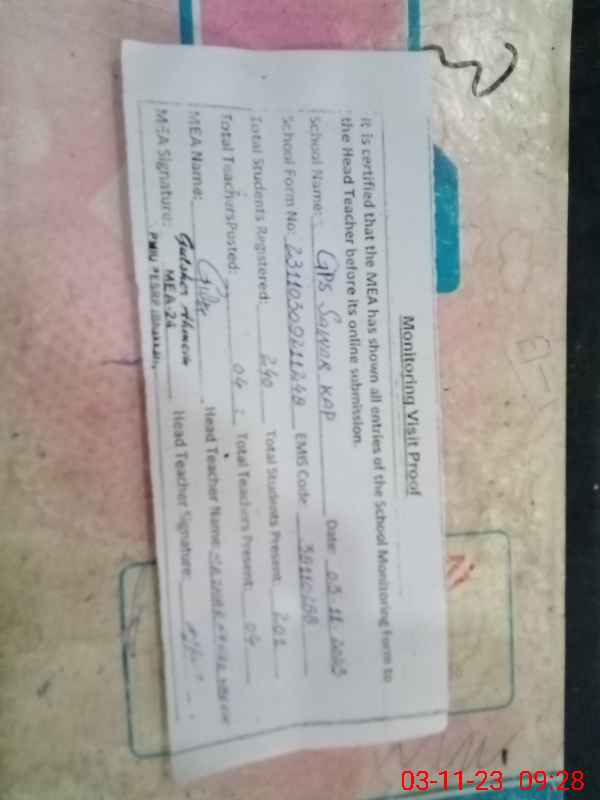 Monitoring Visit Proof
It is certified that the MEA has shown all entries of the School Monitoring Form to
the Head Teacher before its online submission.
School Name: GPS SAWOR KAP Date: 03 11 2023
School Form No: EMIS Code
Total Students Registered: 240 Total Students Present: 201
Total Teachers Posted: 04 Total Teachers Present: 04
MEA Name: Head Teacher Name:
MEA Signature: Head Teacher Signature:
MEA-24
03-11-23 09:28